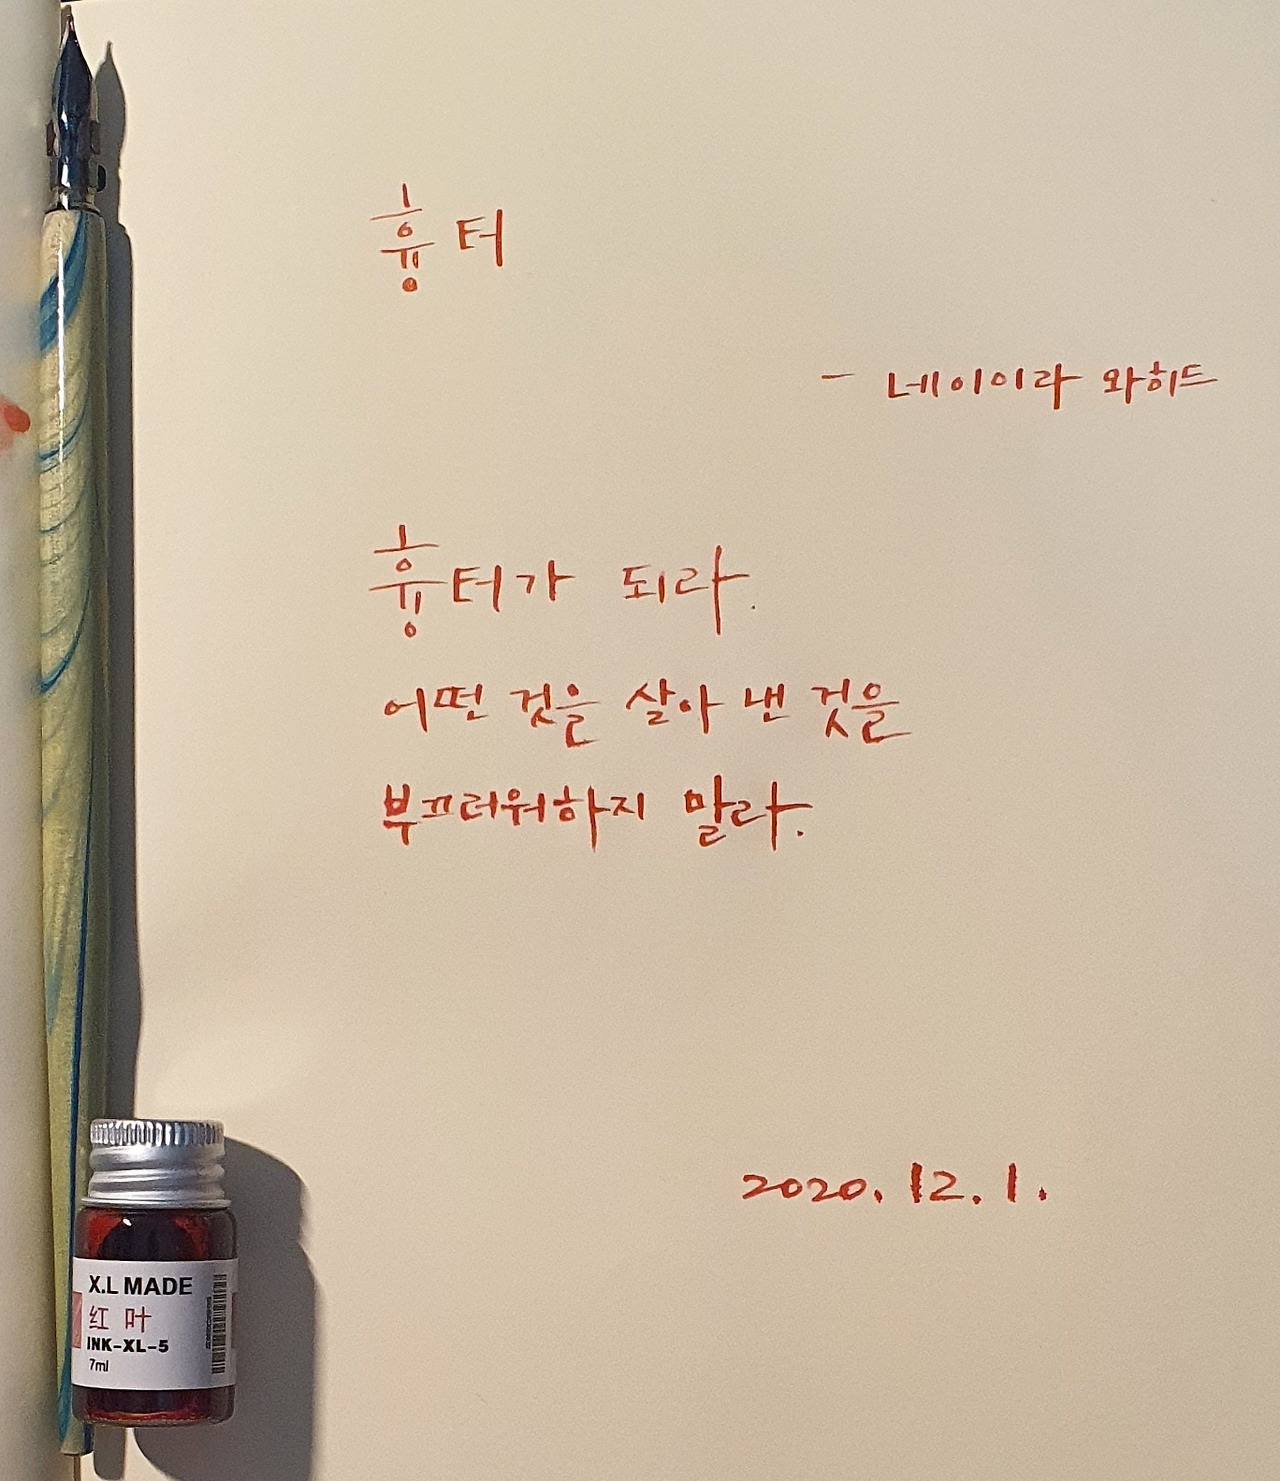 흉터
- 네이이라 와히드
흉터가 되라.
어떤 것을 살아 낸 것을
부끄러워하지 말라.
2020. 12. 1.
X.L MADE
红 叶
INK-XL-5
7ml